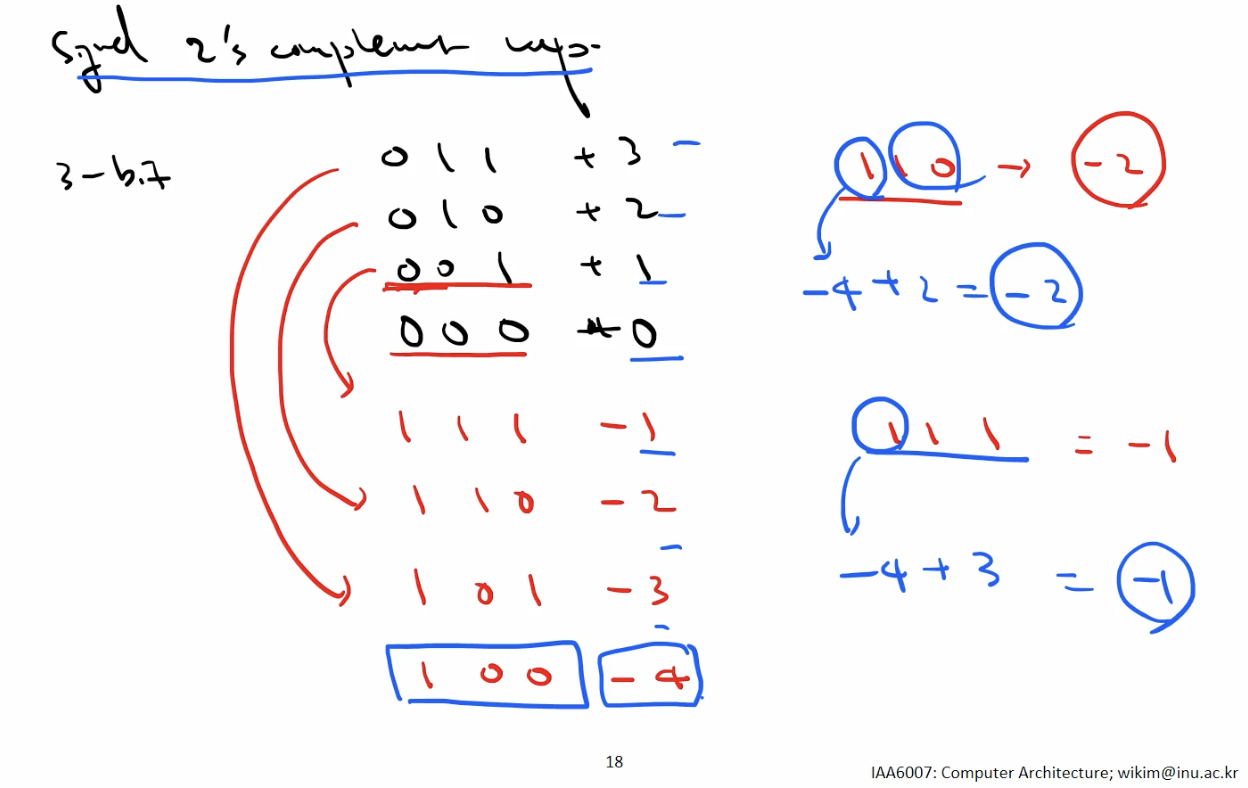 Signed 2's complement repr.
3-bit
0 1 1 + 3
0 1 0 + 2
0 0 1 + 1
0 0 0 0
1 1 1 - 1
1 1 0 - 2
1 0 1 - 3
1 0 0 - 4
1 1 0 → - 2
- 4 + 2 = - 2
1 1 1 = - 1
- 4 + 3 = - 1
18
IAA6007: Computer Architecture; wikim@inu.ac.kr